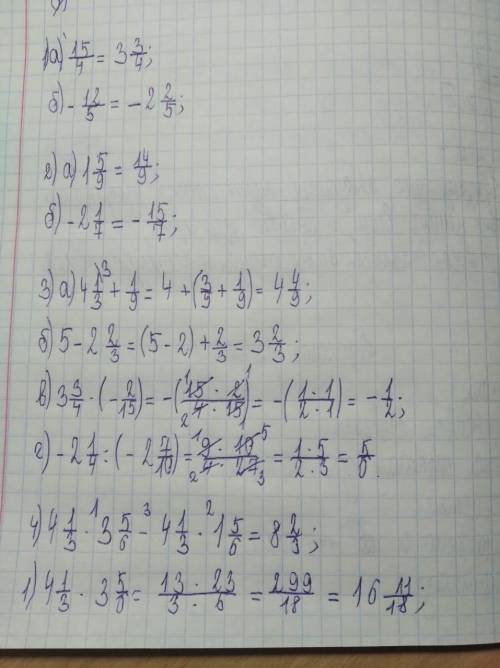 1)а) 15/4 = 3 3/4;
б) - 12/5 = -2 2/5;
2) а) 1 5/9 = 14/9;
б) -2 1/7 = - 15/7;
3) а) 4 1/3 ³ + 1/9 = 4 + (3/9 + 1/9) = 4 4/9;
б) 5 - 2 2/3 = (5 - 2) + 2/3 = 3 2/3;
в) 3 3/4 · (- 2/15) = -(15 · 2 / 4 · 15) = -(1 · 1 / 2 · 1) = - 1/2;
г) -2 1/4 : (-2 7/10) = 9 · 10 / 4 · 27 = 1 · 5 / 2 · 3 = 5/6.
4) 4 1/3 · 3 5/6 - 4 1/3 · 1 5/6 = 8 2/3;
1) 4 1/3 · 3 5/6 = 13 · 23 / 3 · 6 = 299/18 = 16 11/18;